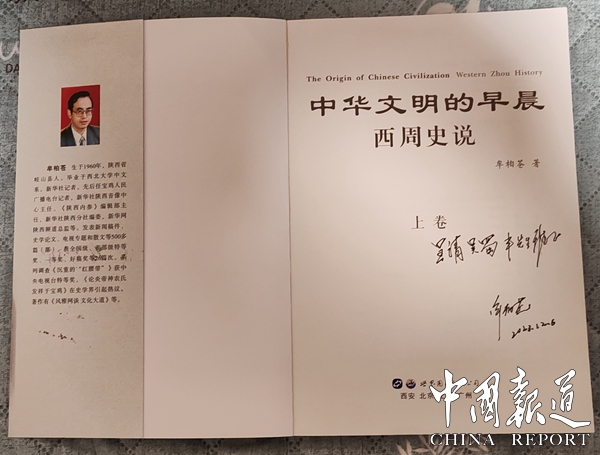 牟柏苍 生于1960年，陕西省
岐山县人，毕业于西北大学中文
系，新华社记者，先后任宝鸡人民
广播电台记者、新华社陕西音像中
心主任、《陕西内参》编辑部主
任、新华社陕西分社编委、新华网
陕西频道总监等，发表新闻稿件、
史学论文、电视专题和散文等500多
篇（部），获全国级、省部级特等
奖、一等奖、好稿奖等
列调查《沉重的“红腰带”》获中
央电视台特等奖，《论炎帝神农氏
发祥于宝鸡》在史学界引起热议。
著作有《风雅网谈 文化大道》等。
The Origin of Chinese Civilization Western Zhou History
中华文明的早晨
西周史说
牟柏苍 著
上卷
牟柏苍
世界图
西安 北京 广州
中國報道
CHINA REPORT